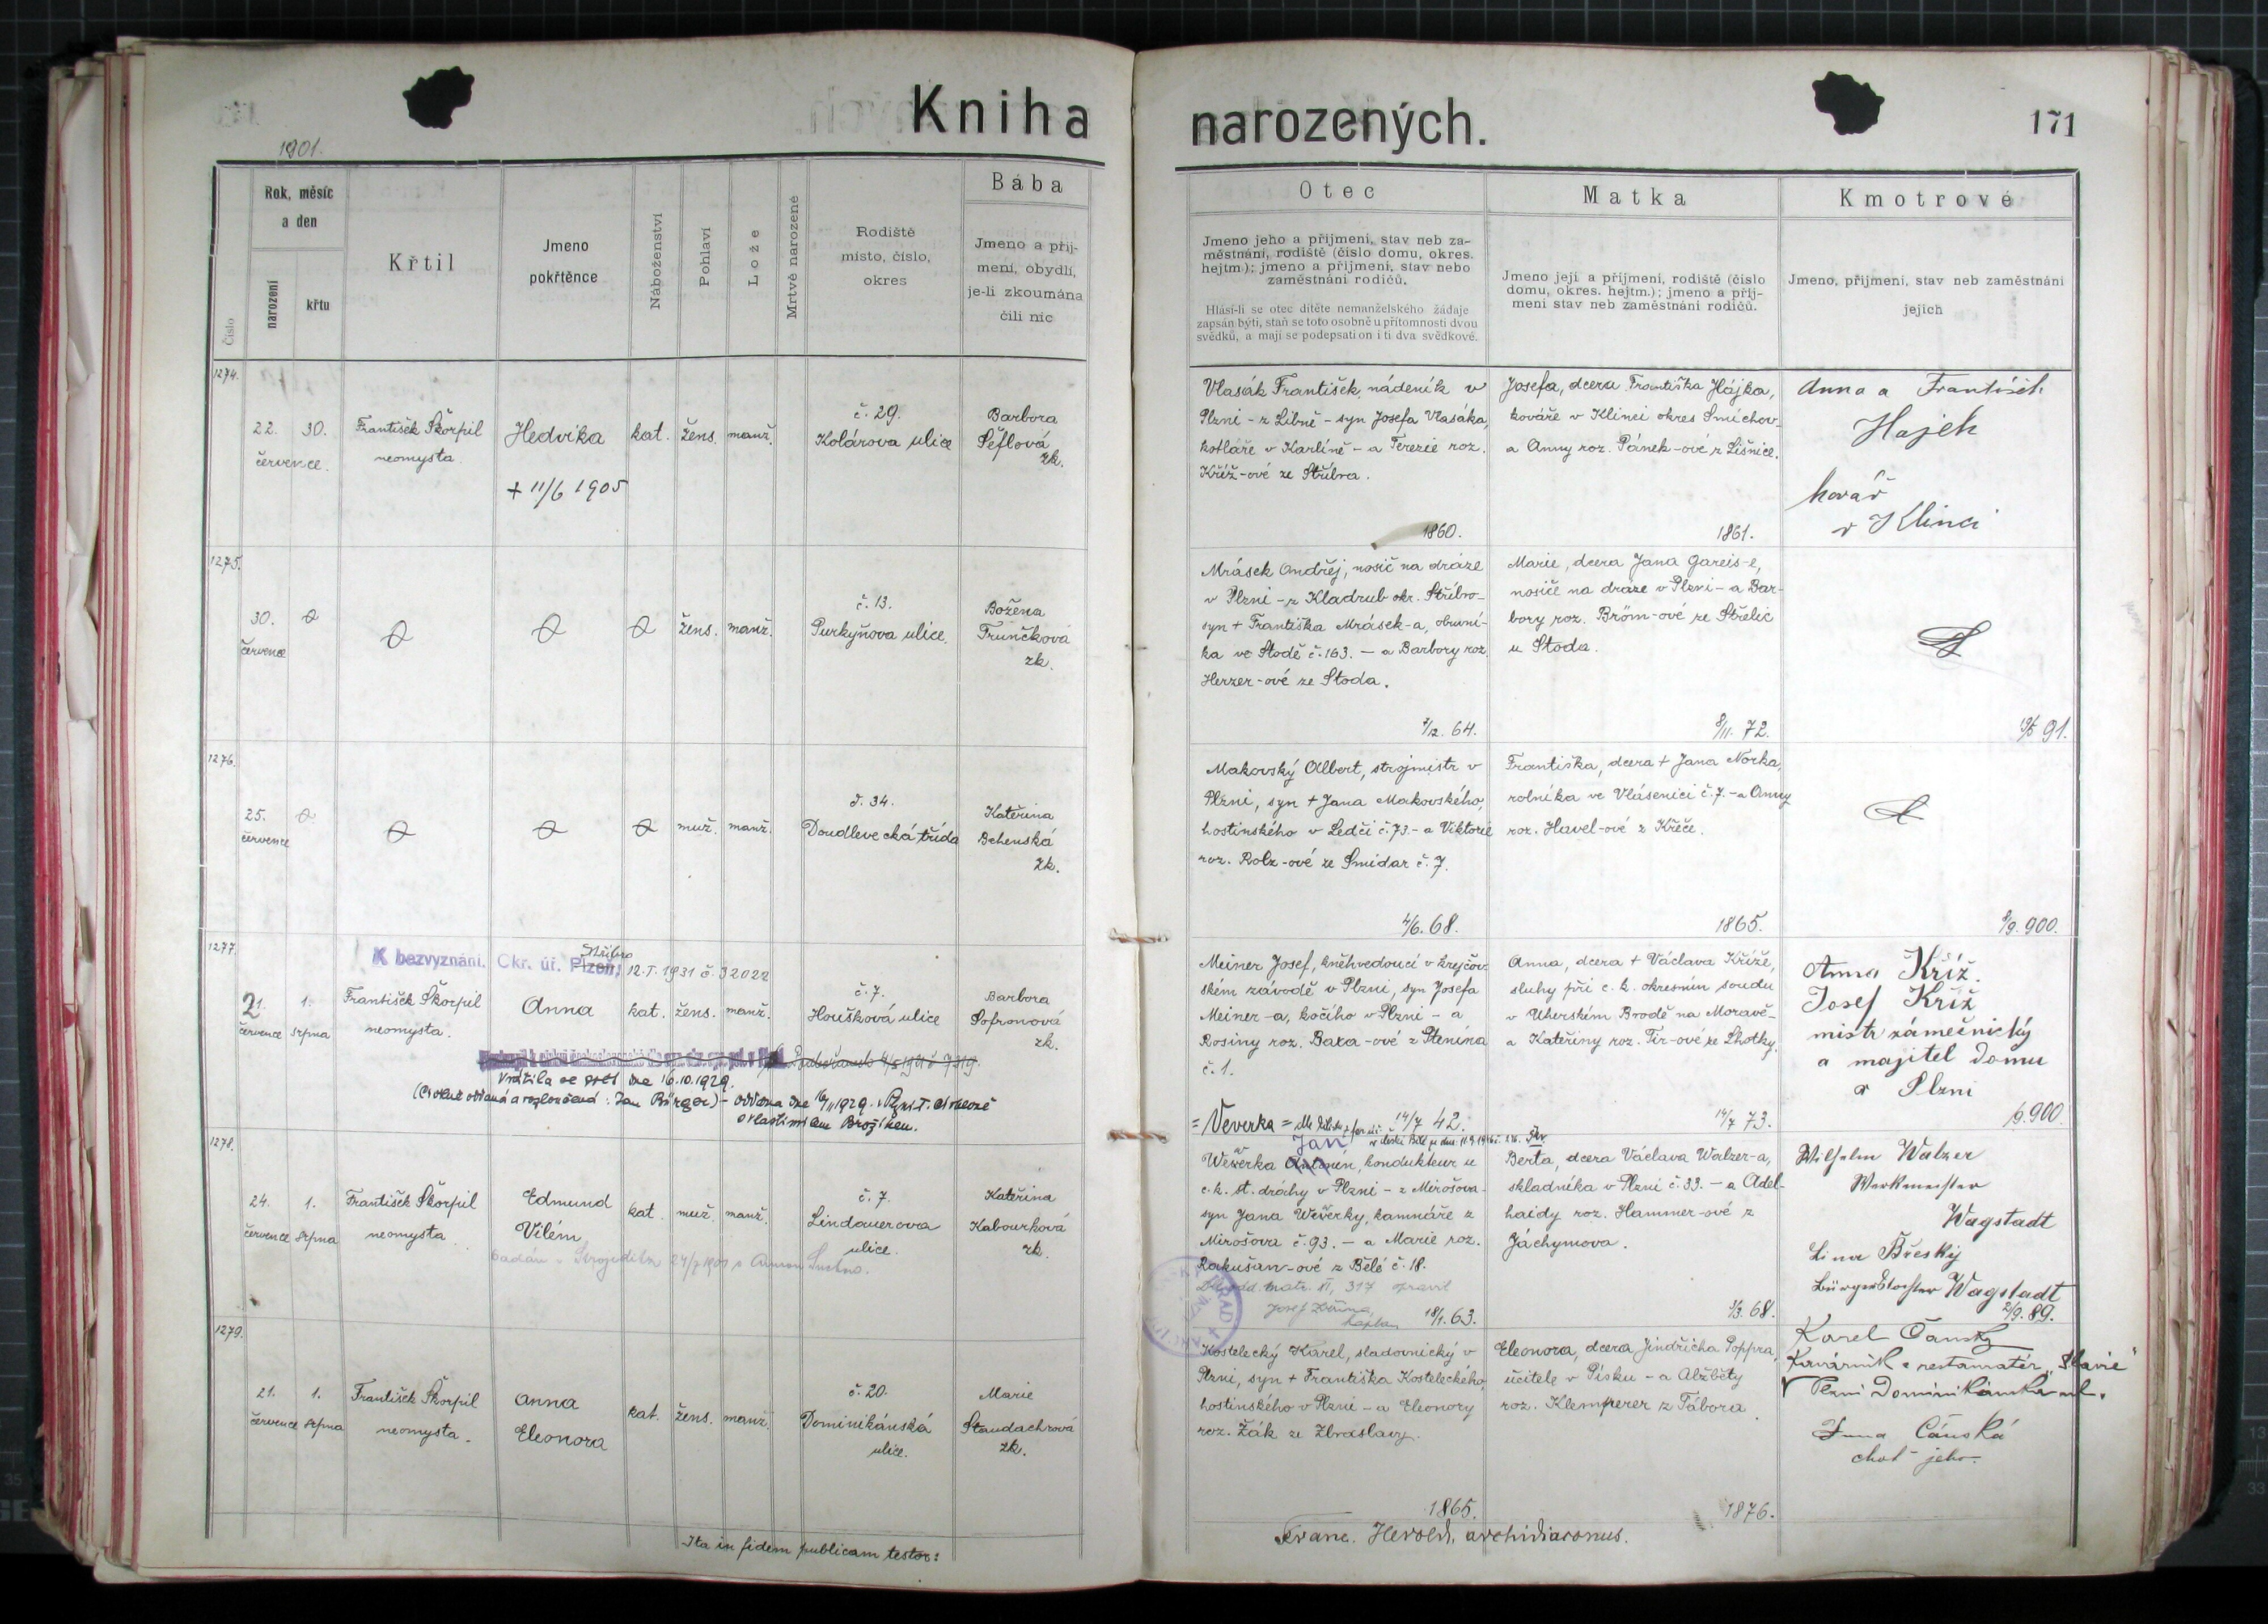 Kniha narozených.
171
1901.
Číslo
Rok, měsíc
a den
narození
křtu
Křtil
Jmeno
pokřtěnce
Náboženství
Pohlaví
Lože
Mrtvě narozené
Rodiště
místo, číslo,
okres
Bába
Jmeno a příj-
mení, obydlí,
je-li zkoumána
čili nic
Otec
Jmeno jeho a příjmení, stav neb za-
městnání, rodiště (číslo domu, okres.
hejtm.); jmeno a příjmení, stav nebo
zaměstnání rodičů.
Hlásí-li se otec dítěte nemanželského žádaje
zapsán býti, staň se toto osobně u přítomnosti dvou
svědků, a mají se podepsati on i ti dva svědkové.
Matka
Jmeno její a příjmení, rodiště (číslo
domu, okres. hejtm.); jmeno a příj-
mení stav neb zaměstnání rodičů.
Kmotrové
Jmeno, příjmení, stav neb zaměstnání
jejich
1274.
22. 30.
července.
František Škorpil
neomysta
Hedvika
+ 11/6 1905
kat.
žens.
manž.
č. 29.
Kolárova ulice
Barbora
Šéflová
zk.
Vlasák František, nádeník v
Plzni - z Libně - syn Josefa Vlasáka,
kotláře v Karlíně - a Terezie roz.
Kříž-ové ze Stříbra.
1860.
Josefa, dcera Františka Hájka,
kováře v Klinci okres Smíchov-
a Anny roz. Pánek-ové z Líšnice.
1861.
Anna a František
Hajek
kovář
v Klinci
1275.
30.
července
žens.
manž.
č. 13.
Purkyňova ulice.
Božena
Trunčková
zk.
Mrásek Ondřej, nosič na dráze
v Plzni - z Kladrub okr. Stříbro-
syn + Františka Mrásek-a, obuvní-
ka ve Stodě č. 163. - a Barbory roz.
Herzer-ové ze Stoda.
7/12. 64.
Marie, dcera Jana Gareis-e,
nosiče na dráze v Plzni - a Bar-
bory roz. Bröm-ové ze Střelic
u Stoda.
8/11. 72.
19/5 91.
1276.
25.
července
muž.
manž.
č. 34.
Doudlevecká třída
Kateřina
Behenská
zk.
Makovský Albert, strojmistr v
Plzni, syn + Jana Makovského,
hostinského v Ledči č. 73. - a Viktorie
roz. Rolz-ové ze Smidar č. 7.
4/6. 68.
Františka, dcera + Jana Norka,
rolníka ve Vlásenici č. 7. - a Anny
roz. Havel-ové z Křeče.
1865.
8/9. 900.
1277.
Stříbro
K bezvyznání. Okr. úř. Plzeň, 12.I.1931 č. 32022
21. 1.
července srpna
František Škorpil
neomysta.
Anna
kat.
žens.
manž.
č. 7.
Houšková ulice
Barbora
Sofronová
zk.
Vrátila se zpět dne 16.10.1929.
(Civilně oddaná a rozloučená: Jan Bürger) - oddána dne 16/11 1929 v Plzni I. církevně
s Vlastimilem Brožíkem.
Meiner Josef, kněhvedoucí v krejčov-
ském závodě v Plzni, syn Josefa
Meiner-a, kočího v Plzni - a
Rosiny roz. Baxa-ové z Stěnína
č. 1.
14/7 42.
Anna, dcera + Václava Kříže,
sluhy při c. k. okresním soudu
v Uherském Brodě na Moravě-
a Kateřiny roz. Tir-ové ze Lhotky.
14/7 73.
Anna Kříž.
Josef Kříž
mistr zámečnický
a majitel domu
v Plzni
1278.
24. 1.
července srpna
František Škorpil
neomysta
Edmund
Vilém
kat.
muž.
manž.
č. 7.
Lindauerova
ulice.
Kateřina
Kabourková
zk.
= Veverka =
Jan
Weverka Antonín, kondukteur u
c. k. st. dráhy v Plzni - z Mirošova-
syn Jana Weverky, kamnáře z
Mirošova č. 93. - a Marie roz.
Rakušan-ové z Bělé č. 18.
18/1. 63.
Berta, dcera Václava Walzer-a,
skladníka v Plzni č. 33. - a Adel-
haidy roz. Hammer-ové z
Jáchymova.
1/3. 68.
Wilhelm Walzer
Werkmeister
Wagstadt
Wagstadt
2/9. 89.
1279.
21. 1.
července srpna
František Škorpil
neomysta.
Anna
Eleonora
kat.
žens.
manž.
č. 20.
Dominikánská
ulice.
Marie
Staudachrová
zk.
Kostelecký Karel, sladovnický v
Plzni, syn + Františka Kosteleckého,
hostinského v Plzni - a Eleonory
roz. Žák ze Zbraslavy.
1865.
Eleonora, dcera Jindřicha Poppra,
učitele v Písku - a Alžběty
roz. Klemperer z Tábora
1876.
Karel Čánský
Kavárník a restauratér „Slavie"
v Plzni Dominikánská ul.
Anna Čánská
choť jeho.
Ita in fidem publicam testor:
Franc. Herold, archidiaconus.